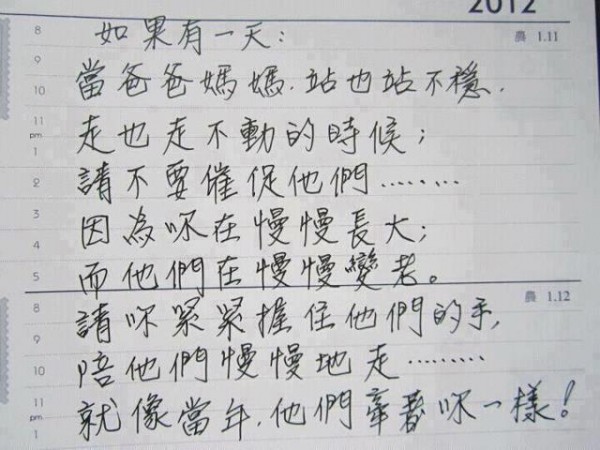 2012
8 如果有一天: 農 1.11
9
10 當爸爸媽媽.站也站不穩.
11
pm 走也走不動的時候;
1
2 請不要催促他們........
3 因為妳在慢慢長大;
4
5 而他們在慢慢變老。
8 請妳緊緊握住他們的手, 農 1.12
9
10 陪他們慢慢地走.........
11
pm 就像當年.他們牽著妳一樣!
1